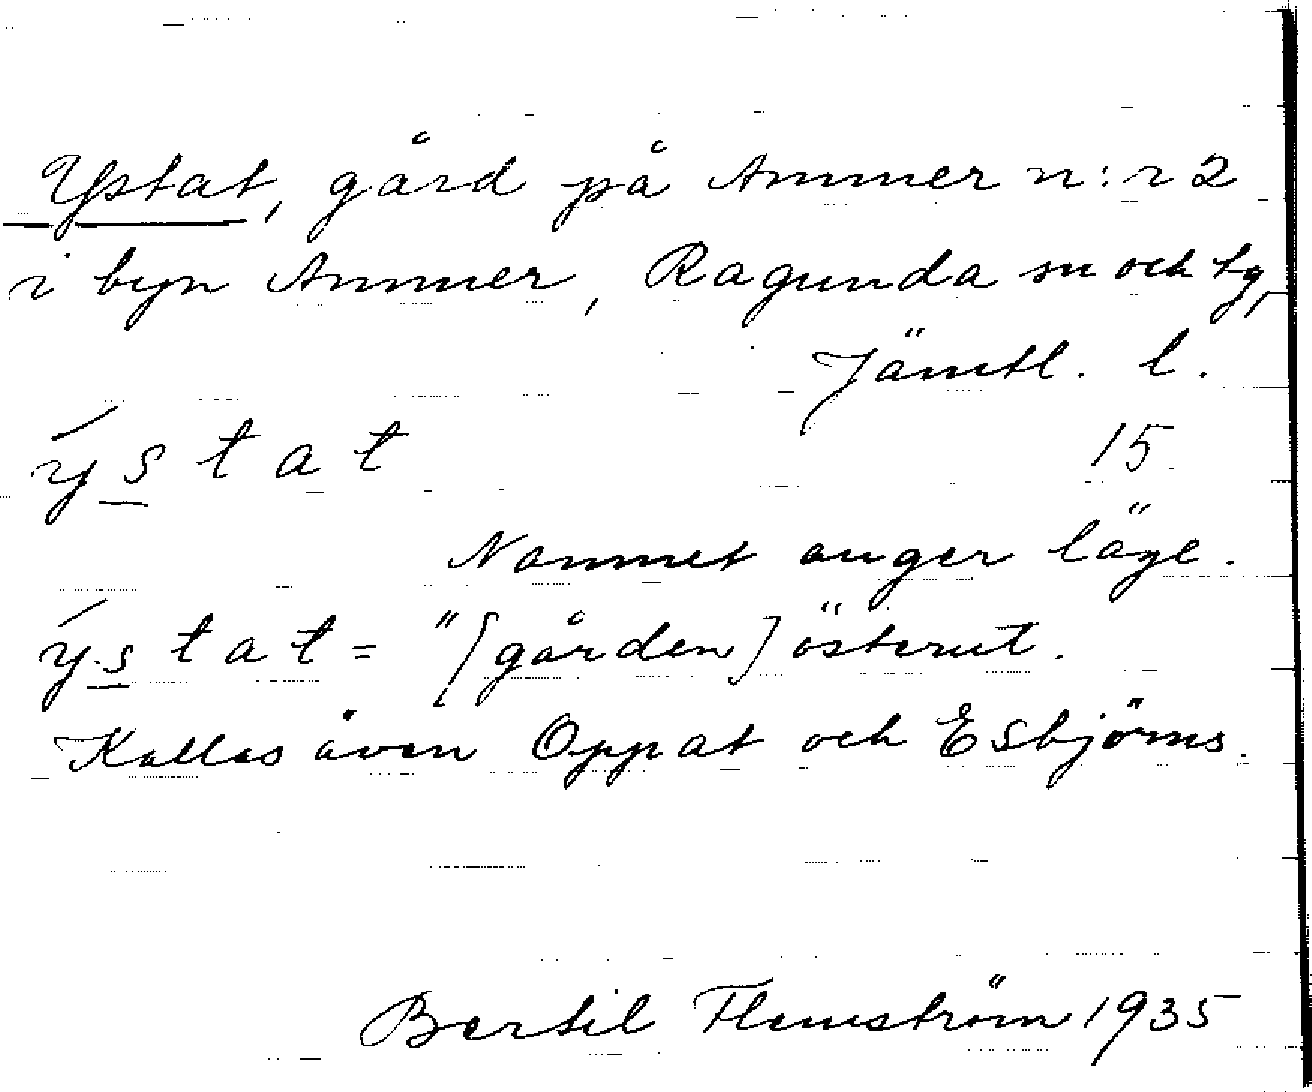 Ystat, gård på Ammer n:r 2
i byn Ammer, Ragunda sn och tg,
Jämtl. l.
ýstat 15
Namnet anger läge.
ýstat = "[gården] österut.
Kallas även Oppat och Esbjörns.
Bertil Flemström 1935